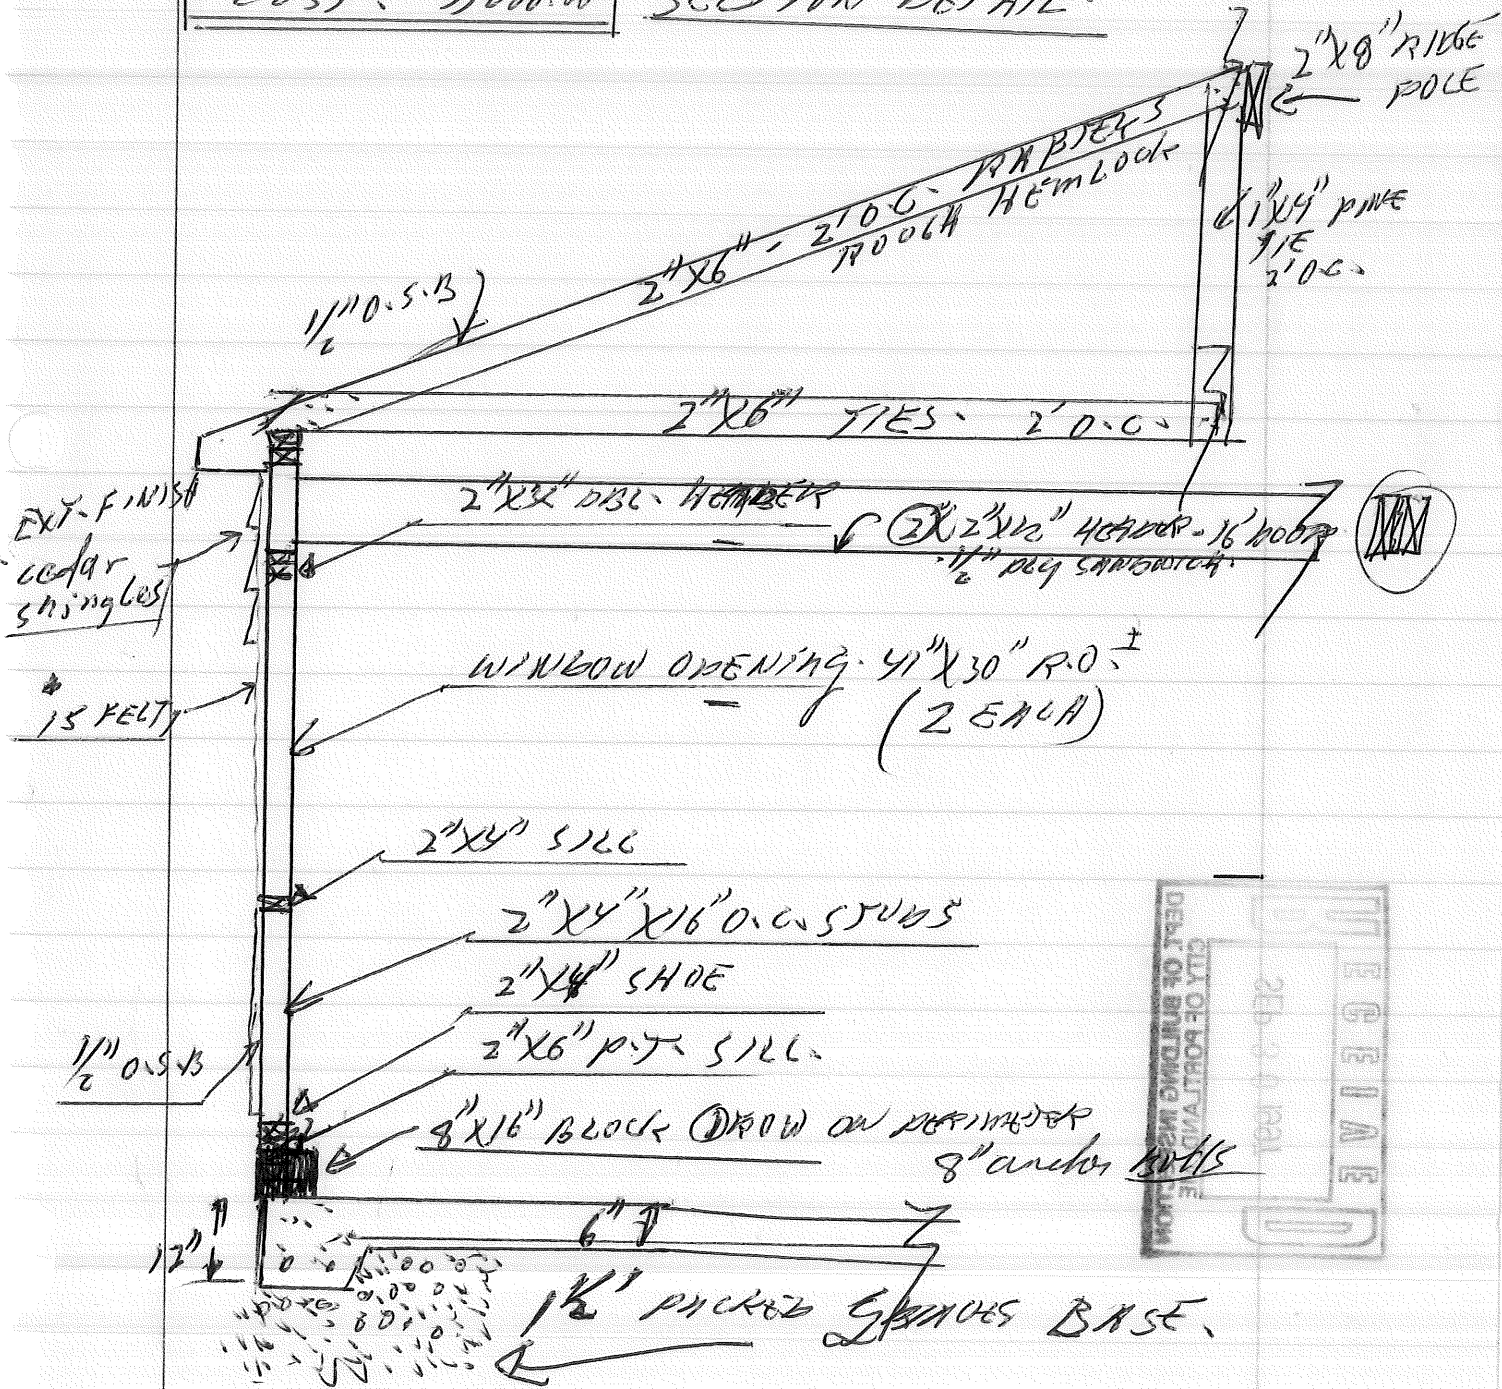 SECTION DETAIL.
2"X8" RIDGE
POLE
2"X6" - 2' O.C. RAFTERS
ROUGH HEMLOCK
1"X4" PINE
TIE
2' O.C.
1/2" O.S.B
2"X6" TIES. 2' O.C.
EXT. FINISH
cedar
shingles
DBL. HEADER
2"X12" HEADER - 16' DOOR
1/2" PLY SANDWICH.
WINDOW OPENING. 41"X30" R.O. ±
(2 EACH)
15 FELT
2"X4" SILL
2"X4"X16" O.C. STUDS
2"X4" SHOE
2"X6" P.T. SILL.
1/2" O.S.B
8"X16" BLOCK 1 ROW ON PERIMETER
8" anchor bolts
12"
6"
1 1/2' PACKED GRAVEL BASE.
RECEIVED
SEP
DEPT. OF BUILDING INSPECTION
CITY OF PORTLAND, ME